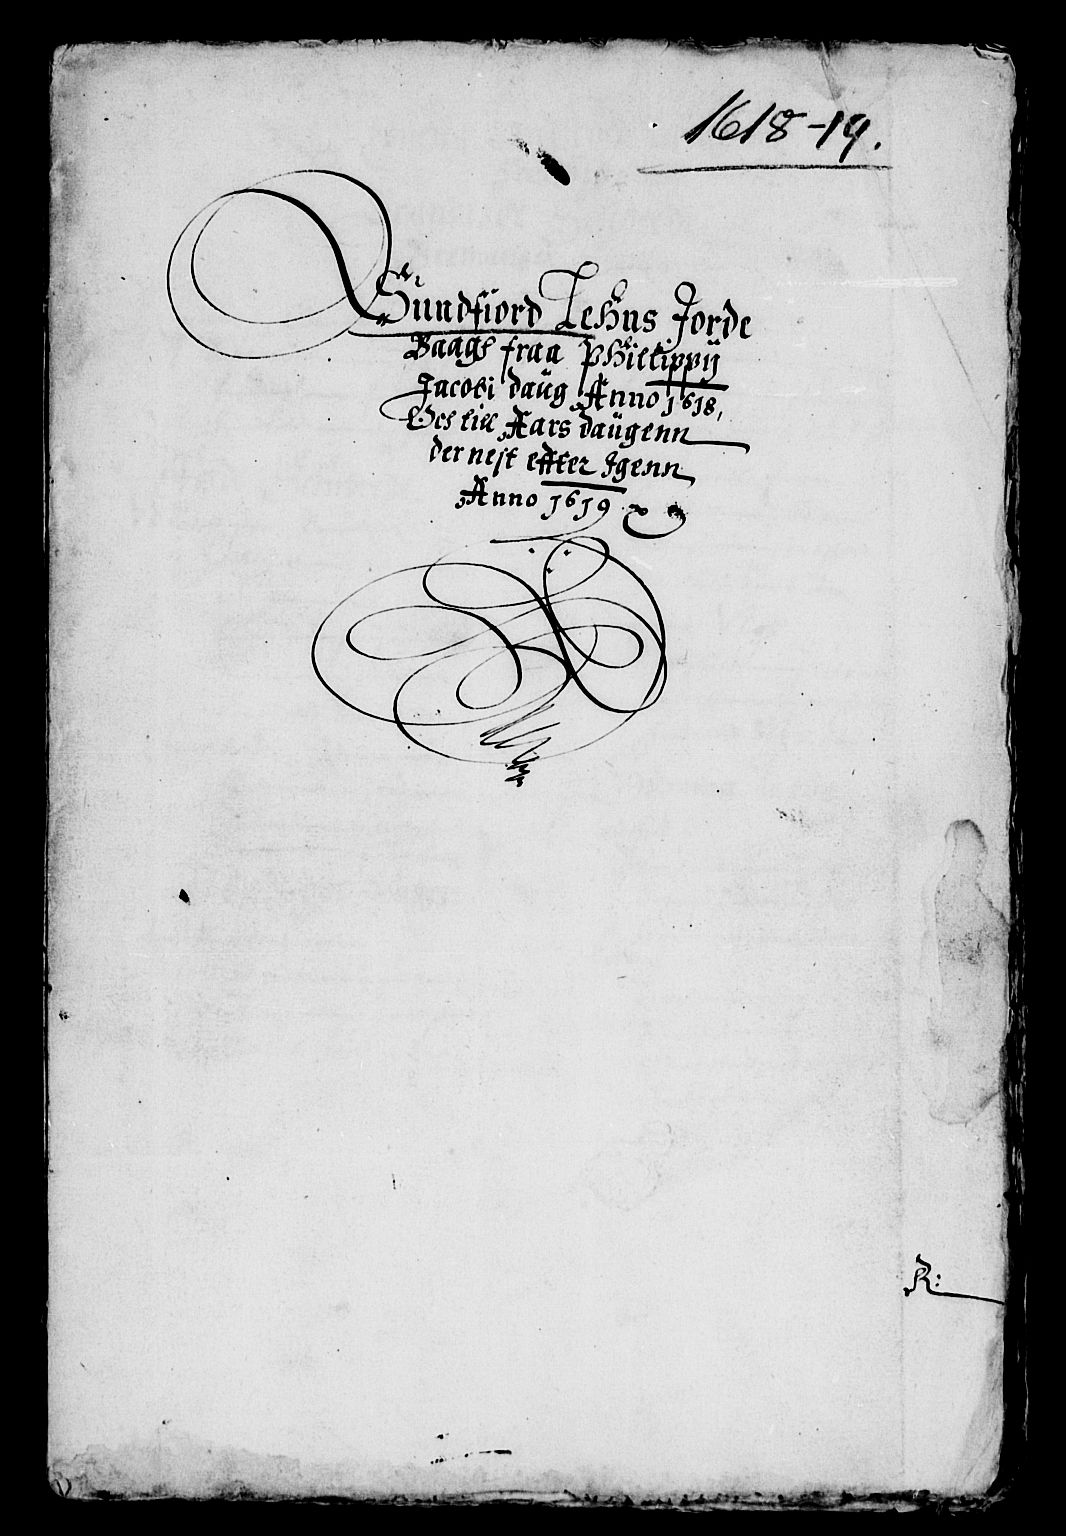 1618-19.
Sundfiord Lehns Jorde
Baagh fraa Philippij
Jacobi daug Anno 1618,
Och till Aars daugenn
der nest effter Igenn
Anno 1619
R: